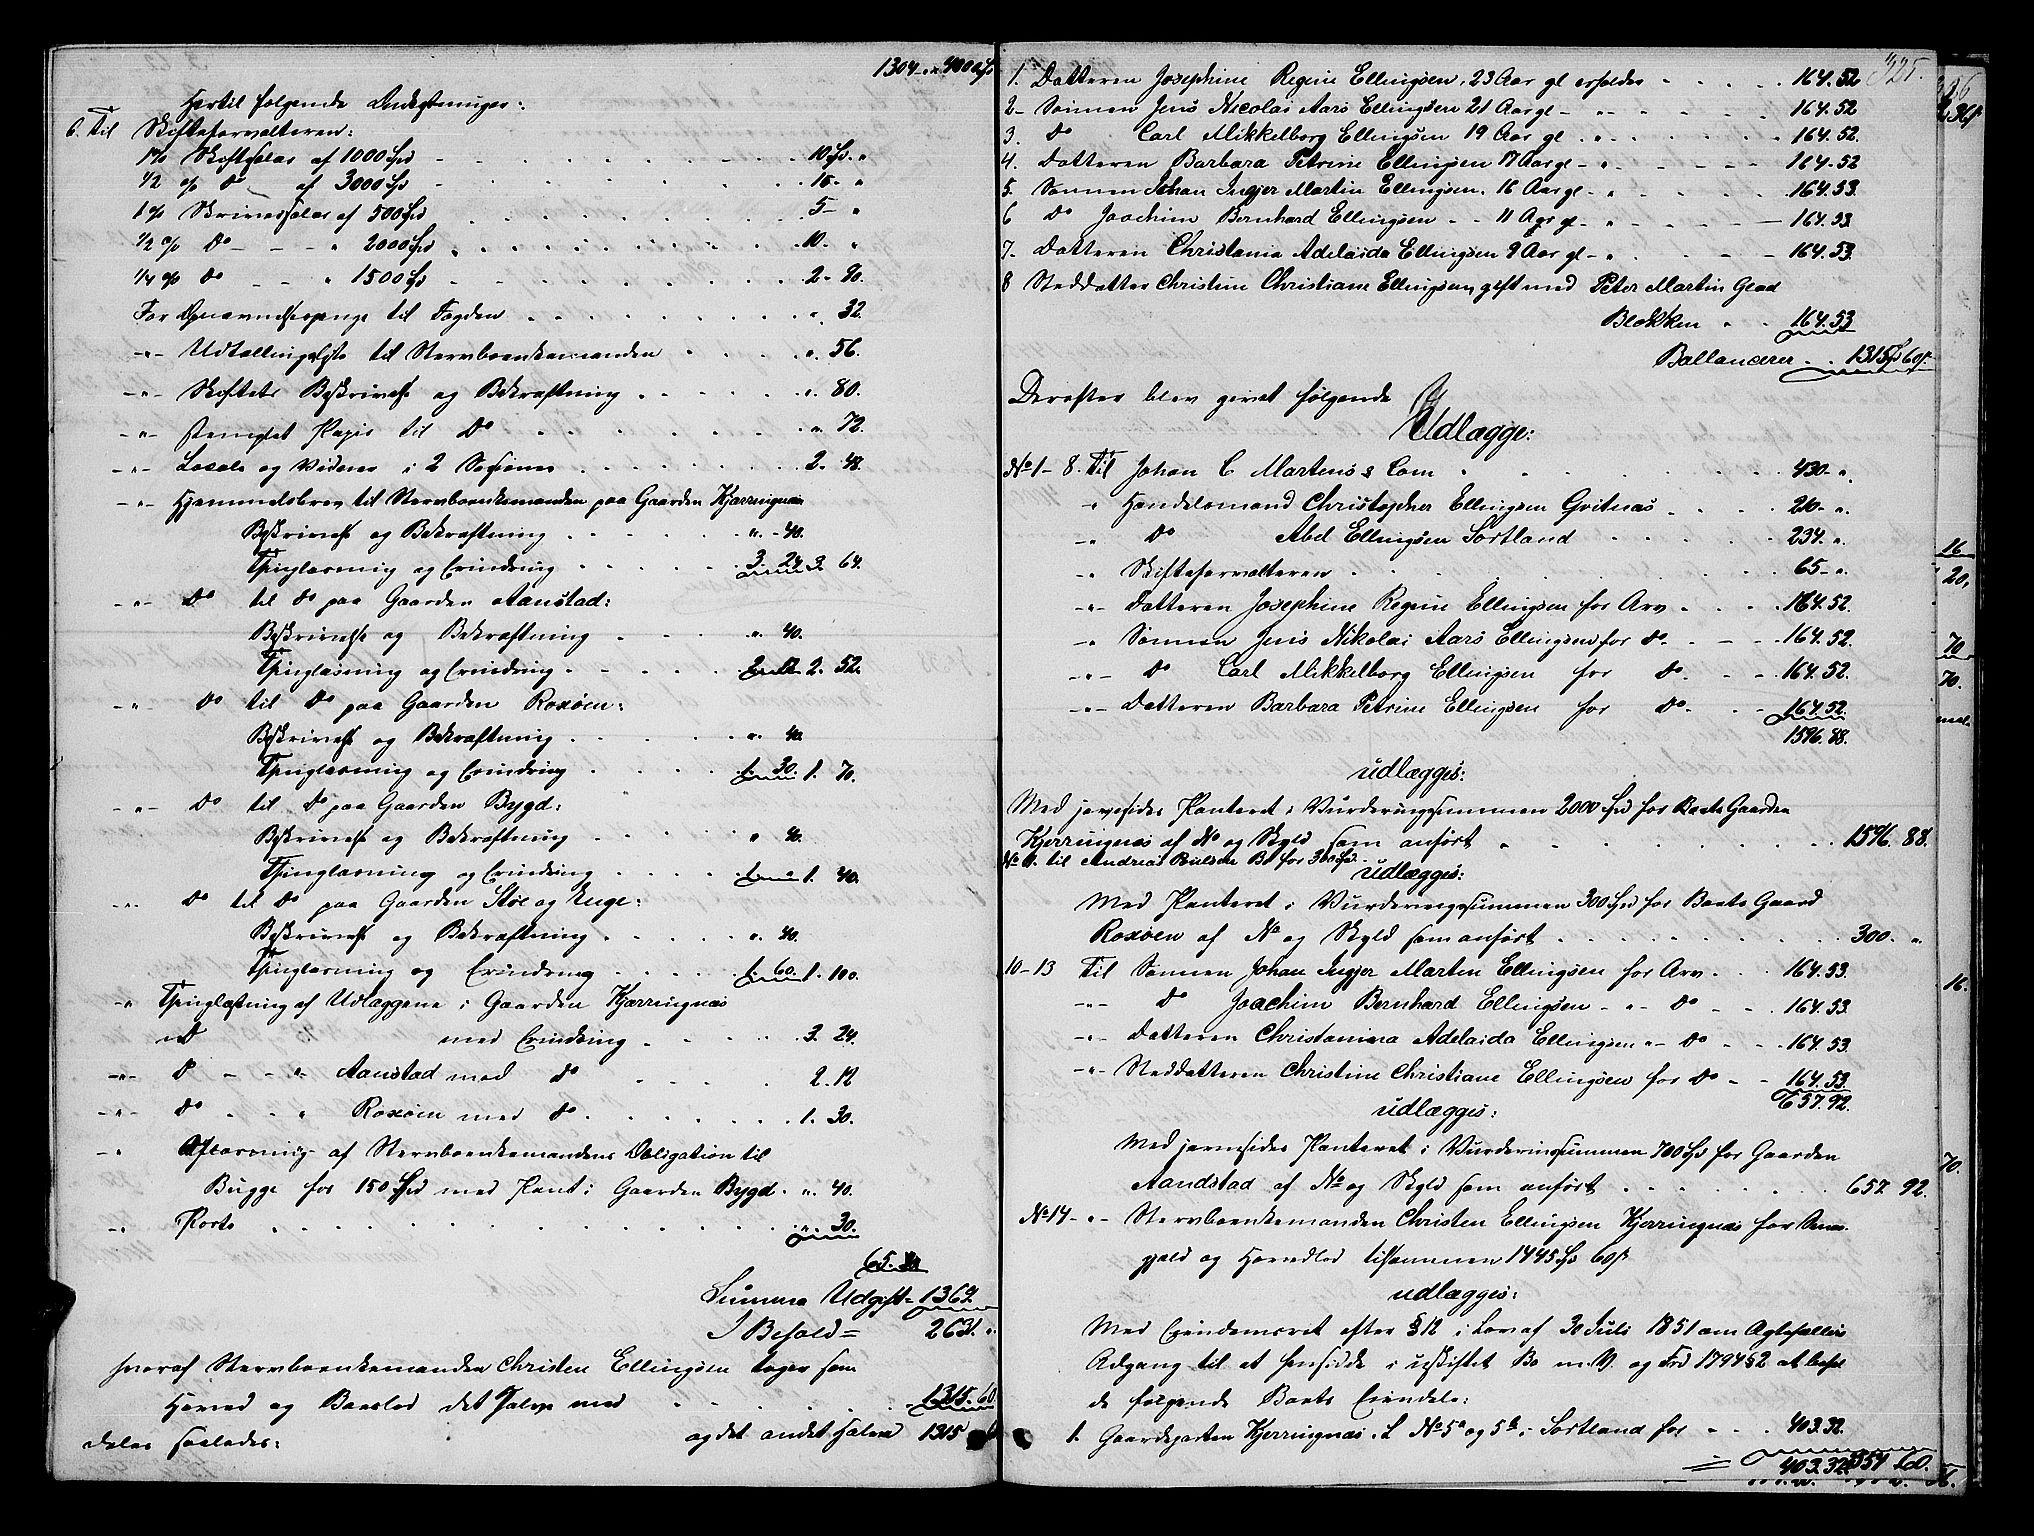 1304 " 4000 Spd
Hertil følgende Andtegtninger:
6. Til Skifteforvalteren:
1 % Skiftesalær af 1000 Spd . . . 10 Spd "
1/2 % Do af 3000 Spd . . . 15 - "
1 % Skriversalær af 500 Spd . . . 5 - "
1/2 % Do - - " 2000 Spd . . . 10. "
1/4 % Do - - " 1500 Spd . . . 2 - 90.
For Opnævnelsespenge til Fogden . . . ". 32
-"- Udtællingsliste til Stervboenkemanden . . . ". 56.
-"- Skiftets Beskrivelse og Bekræftning . . . ". 80.
-"- stemplet Papir til Do . . . ". 72.
-"- Locale og Vidner i 2 Sessioner . . . 2. 48.
-"- Hjemmelsbrev til Stervboenkemanden paa Gaarden Kjærringnæs
Beskrivelse og Bekræftning . . . ". 40.
Thinglæsning og Erindring . . . 3. 24. 3. 64.
-"- Do til Do paa Gaarden Aanstad:
Beskrivelse og Bekræftning . . . ". 40.
Thinglæsning og Erindring . . . 2. 12 2. 52.
-"- Do til Do paa Gaarden Roxøen:
Beskrivelse og Bekræftning . . . ". 40.
Thinglæsning og Erindring . . . 1. 30. 1. 70.
-"- Do til Do paa Gaarden Bygd:
Beskrivelse og Bekræftning . . . " 40.
Thinglæsning og Erindring . . . 1. " 1. 40.
-"- Do til Do paa Gaarden Støe og Enge:
Beskrivelse og Bekræftning . . . ". 40.
Thinglæsning og Erindring . . . 1. 60. 1. 100.
-"- Thinglæsning af Udlæggene i Gaarden Kjærringnæs
med Erindring . . . 3. 24.
-"- Do - - " Aanstad med Do . . . 2. 12
-"- Do . . " Roxøen med Do . . . 1. 30.
-"- Aflæsning af Stervboenkemandens Obligation til
Bugge for 150 Spd med Pant i Gaarden Bygd . ". 40.
-"- Porto . . . ". 30.
65.
Summa Udgift = 1369.
I Behold = 2631. ".
hvoraf Stervboenkemanden Christen Ellingsen tager som
Hoved og Boeslod det Halve med . . . 1315. 60.
og det andet halve 1315
deles saaledes:
325.
1. Datteren Josephine Regine Ellingsen, 23 Aar gl erholder . . . 164. 52
2 - Sønnen Jens Nicolai Aars Ellingsen 21 Aar gl - . . . 164. 52
3. Do Carl Mikkelborg Ellingsen 19 Aar gl . . . 164. 52.
4. Datteren Barbara Petrine Ellingsen 17 Aar gl - . . . 164. 52
5. Sønnen Johan Ingjer Martin Ellingsen, 16 Aar gl - . . . 164. 53.
6 Do Joachim Bernhard Ellingsen - - 11 Aar gl - . . . 164. 53
7. Datteren Christania Adelaida Ellingsen 9 Aar gl - . . . 164. 53.
8 Steddatter Christine Christiane Ellingsen, gift med Peter Martin Glad
Blokken . . 164. 53
Ballancerer . . 1315 Spd 60 s.
Derefter blev givet følgende
Udlægge:
No 1 - 8. Til Johan C Martens & Com . . . 430 - ".
" Handelsmand Christopher Ellingsen Gvitnæs . . . 20 - ".
-" Do Abel Ellingsen Sortland . . . 234. ".
-"- Skifteforvalteren . . . 65 - ".
-"- Datteren Josephine Regine Ellingsen for Arv . . . 164. 52.
-"- Sønnen Jens Nikolai Aars Ellingsen for Do. - - 164. 52.
-"- Do Carl Mikkelborg Ellingsen for Do. - - 164. 52.
-"- Datteren Barbara Petrine Ellingsen for Do. - 164. 52.
1596. 88.
udlægges:
Med jævnsides Panteret i Vurderingssummen 2000 Spd for Boets Gaarden
Kjerringnæs af No og Skyld som anført . . . 1596. 88.
No 9. til Andreas Bo for 300 Spd.
udlægges:
Med Panteret i Vurderingssummen 300 Spd for Boets Gaard
Roxøen af No og Skyld som anført . . . 300. "
10 - 13 Til Sønnen Johan Ingjer Martin Ellingsen for Arv . . 164. 53.
-"- Do Joachim Bernhard Ellingsen - "- Do - - 164. 53
-"- Datteren Christanina Adelaida Ellingsen "- Do - . 164. 53
-"- Steddatteren Christine Christiane Ellingsen for Do - - 164. 53.
657. 92.
udlægges:
Med jævnsides Panteret i Vurderinssummen 700 Spd for Gaarden
Aandstad af No og Skyld som anført . . . 657 92.
No 14 - " - Stervboenkemanden Christen Ellingsen Kjerringnæs for
gjæld og Hovedlod tilsammen 1445 Spd 60 s
udlægges:
Med Eiendomsret efter § 12 i Lov af 30 Juli 1851 om Ægtefælles
Adgang til at hensidde i uskiftet Bo m. V. og Frd 1794 § 2 at behol
de følgende Boets Eiendele:
1. Gaardparten Kjerringnæs, L No 5a og 5b i Sortland for . . . 403. 32.
= 403. 32. 2554 80.
16
20.
70
70.
16.
70.